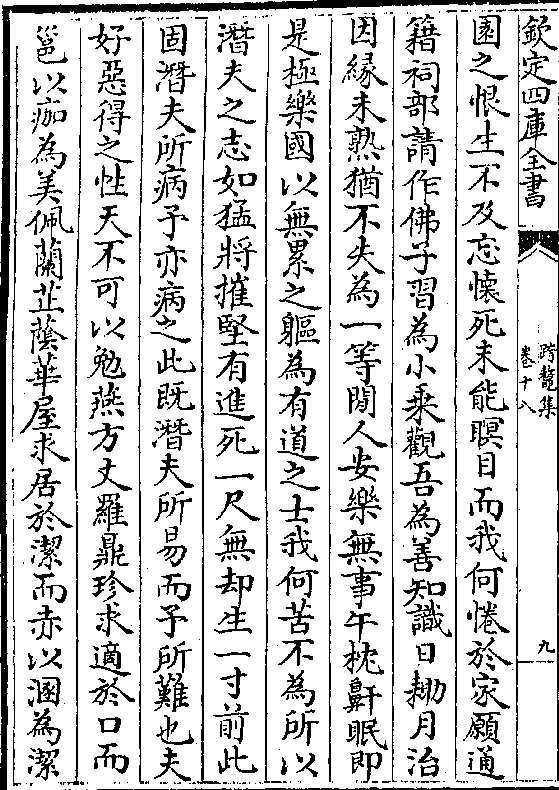 欽定四庫全書
跨鼇集
卷十八
九
園之恨生不及忘懐死未能瞑目而我何惓於家願通
籍祠部請作佛子習為小乘觀吾為善知識日耡月治
因縁未熟猶不失為一等閒人安樂無事午枕鼾眠即
是極樂國以無累之軀為有道之士我何苦不為所以
潛夫之志如猛將摧堅有進死一尺無却生一寸前此
固潛夫所病予亦病之此既潛夫所易而予所難也夫
好惡得之性天不可以勉燕方丈羅鼎珍求適於口而
邕以痂為美佩蘭芷蔭華屋求居於潔而赤以溷為潔